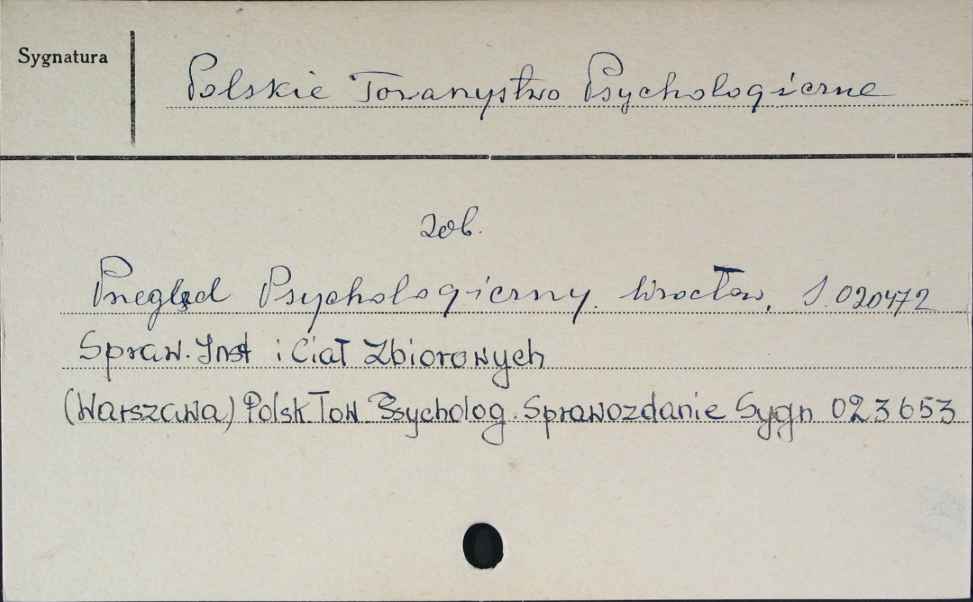 Sygnatura
Polskie Towarzystwo Psychologiczne
Zob.
Przegląd Psychologiczny. Wrocław, S. 020472
Spraw. Inst i Ciał Zbiorowych
(Warszawa) Polsk. Tow. Psycholog. Sprawozdanie Sygn 023653